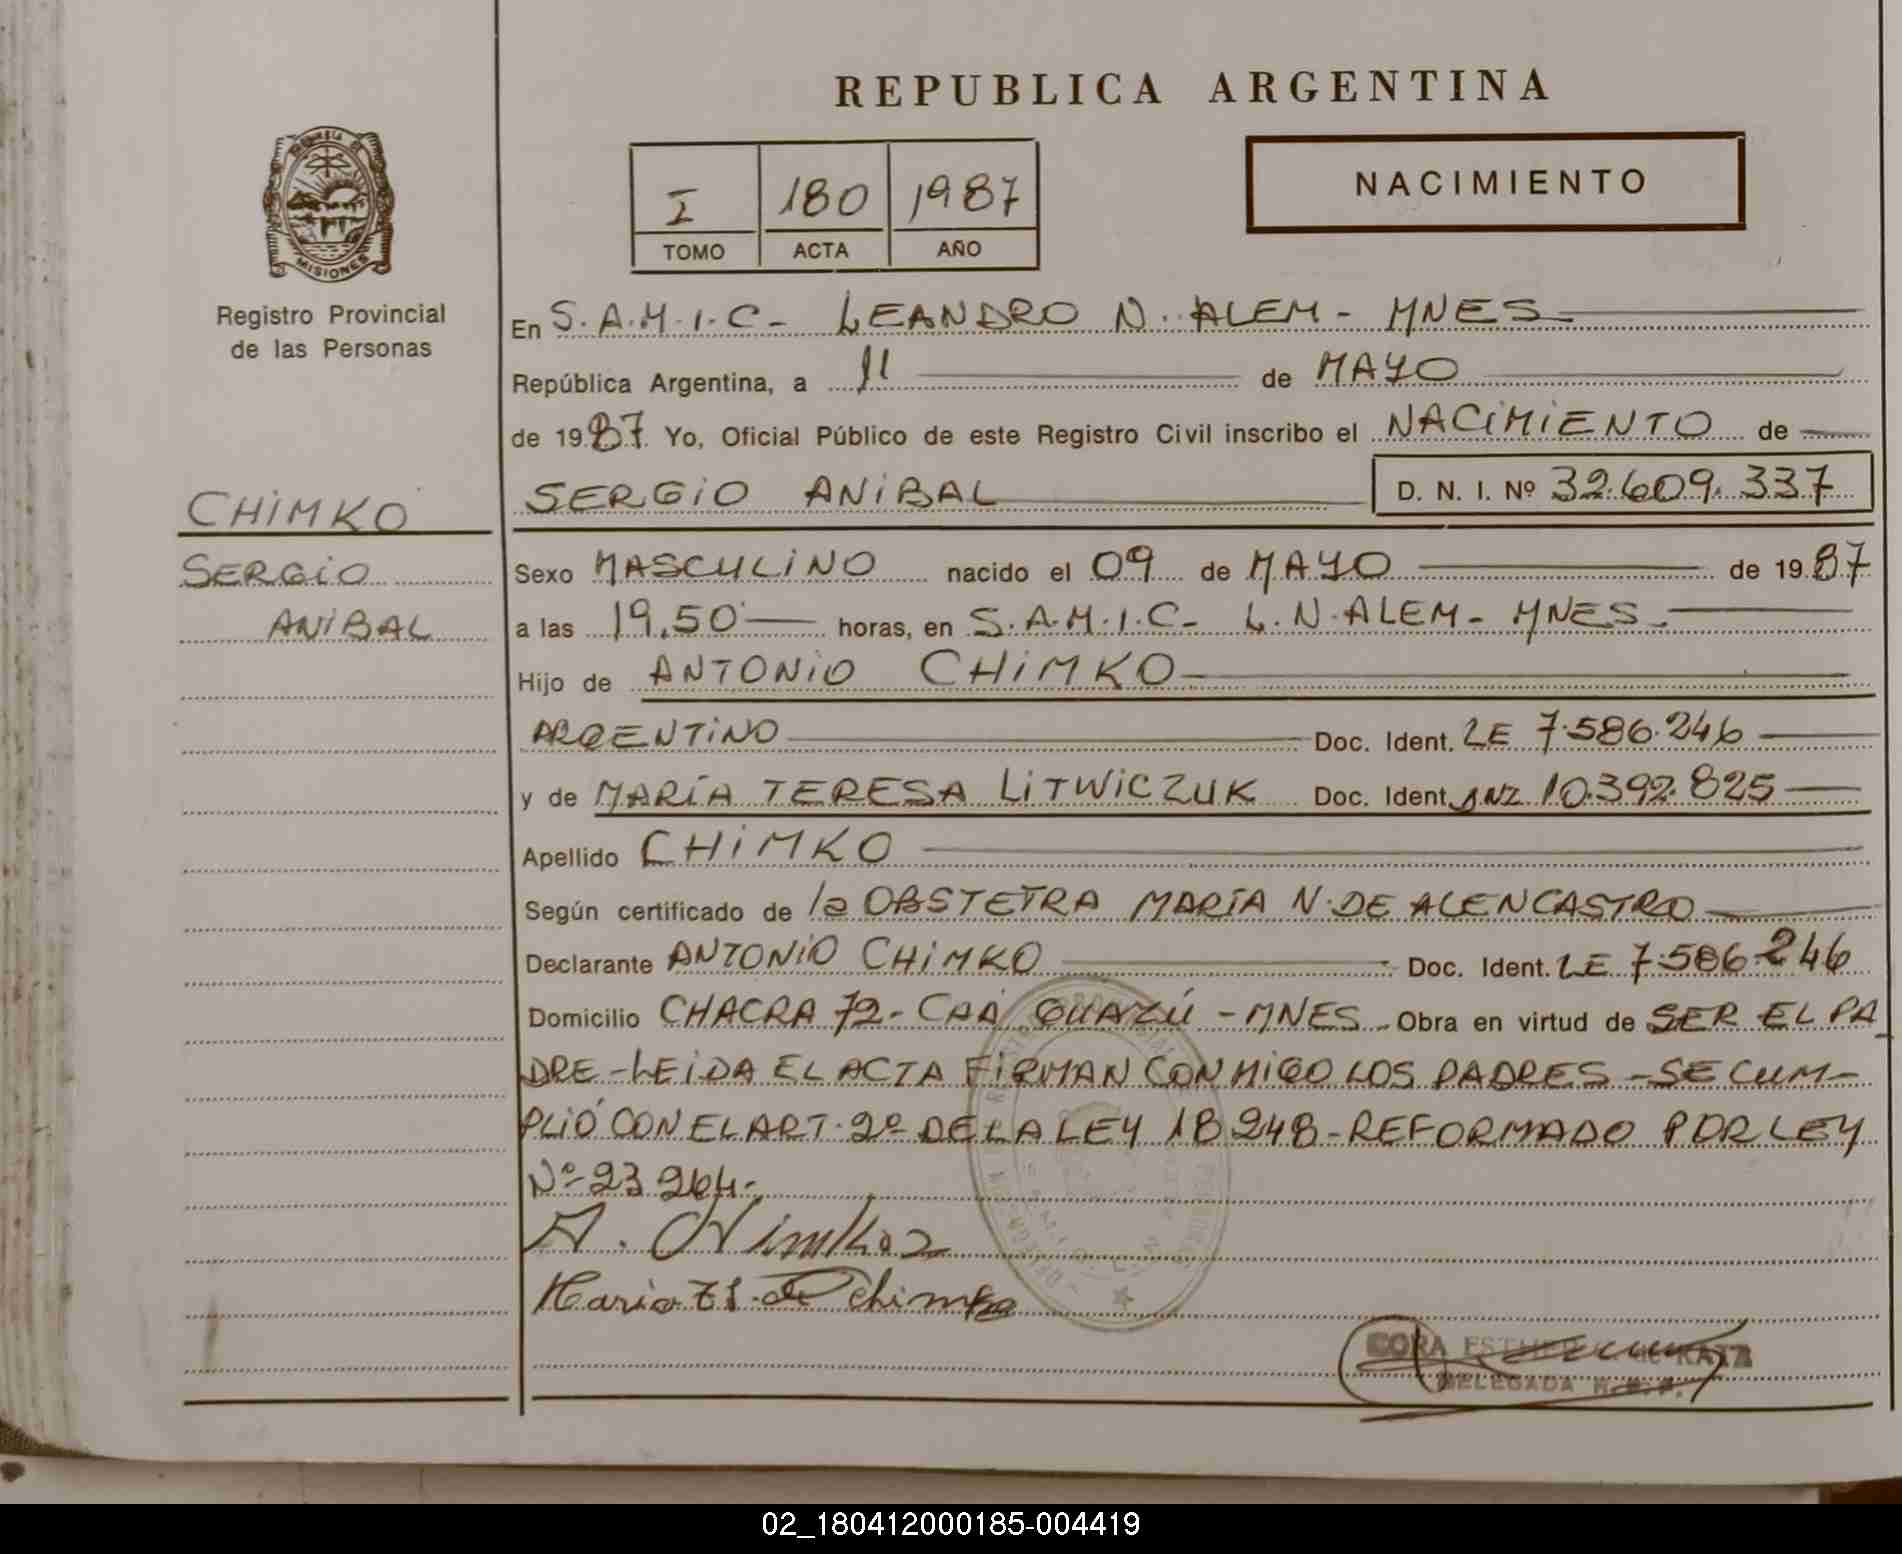 REPUBLICA ARGENTINA
I 180 1987
TOMO ACTA AÑO
NACIMIENTO
MISIONES
Registro Provincial
de las Personas
CHIMKO
SERGIO
ANIBAL
En S.A.M.I.C- LEANDRO N. ALEM - MNES-
República Argentina, a 11 de MAYO
de 1987 Yo, Oficial Público de este Registro Civil inscribo el NACIMIENTO de
SERGIO ANIBAL D. N. I. Nº 32.609.337
Sexo MASCULINO nacido el 09 de MAYO de 1987
a las 19,50 horas, en S.A.M.I.C- L.N.ALEM- MNES-
Hijo de ANTONIO CHIMKO
ARGENTINO Doc. Ident. LE 7.586.246
y de MARÍA TERESA LITWICZUK Doc. Ident. 10.392.825
Apellido CHIMKO
Según certificado de la OBSTETRA MARÍA N. DE ALENCASTRO
Declarante ANTONIO CHIMKO Doc. Ident. LE 7.586.246
Domicilio CHACRA 72- CAÁ GUAZÚ - MNES- Obra en virtud de SER EL PA
DRE-LEIDA EL ACTA FIRMAN CONMIGO LOS PADRES -SE CUM-
PLIÓ CON EL ART. 2º DE LA LEY 18 248-REFORMADO POR LEY
Nº-23 264-
A.
Maria
CORA ESTHER de KATZ
DELEGADA R.P.P.
02_180412000185-004419